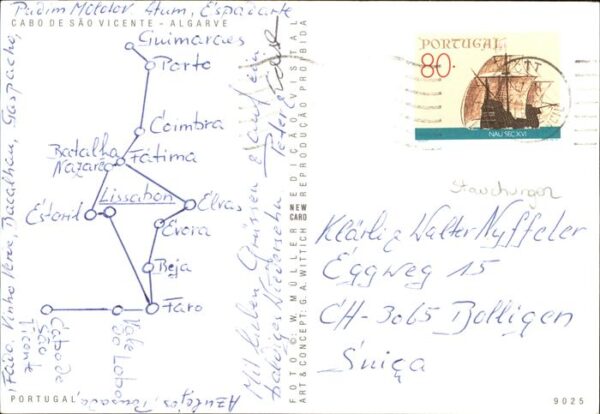 Pudim Molotov Atum, Espadarte
CABO DE SÃO VICENTE - ALGARVE
Guimaraes
Porto
Coimbra
Batalha
Nazaré
Fátima
Lissabon
Estoril
Elvas
Evora
Beja
Faro
Vale Lobo
Cabo de
São
(Fado, Vinho Verde, Bacalhau, Gaspacho,
Azulejos, Pousada,
PORTUGAL
Mit lieben Grüssen und ein
baldiges Wiedersehn
FOTO © W. MÜLLER EDIÇÃO VISTAL
ART & CONCEPT: G. A. WITTICH REPRODUÇÃO PROIBIDA
NEW
CARD
PORTUGAL
80.
CTT
NAU SÉC XVI
Klärli & Walter Nyffeler
Eggweg 15
CH-3065 Bolligen
Suiça
9025